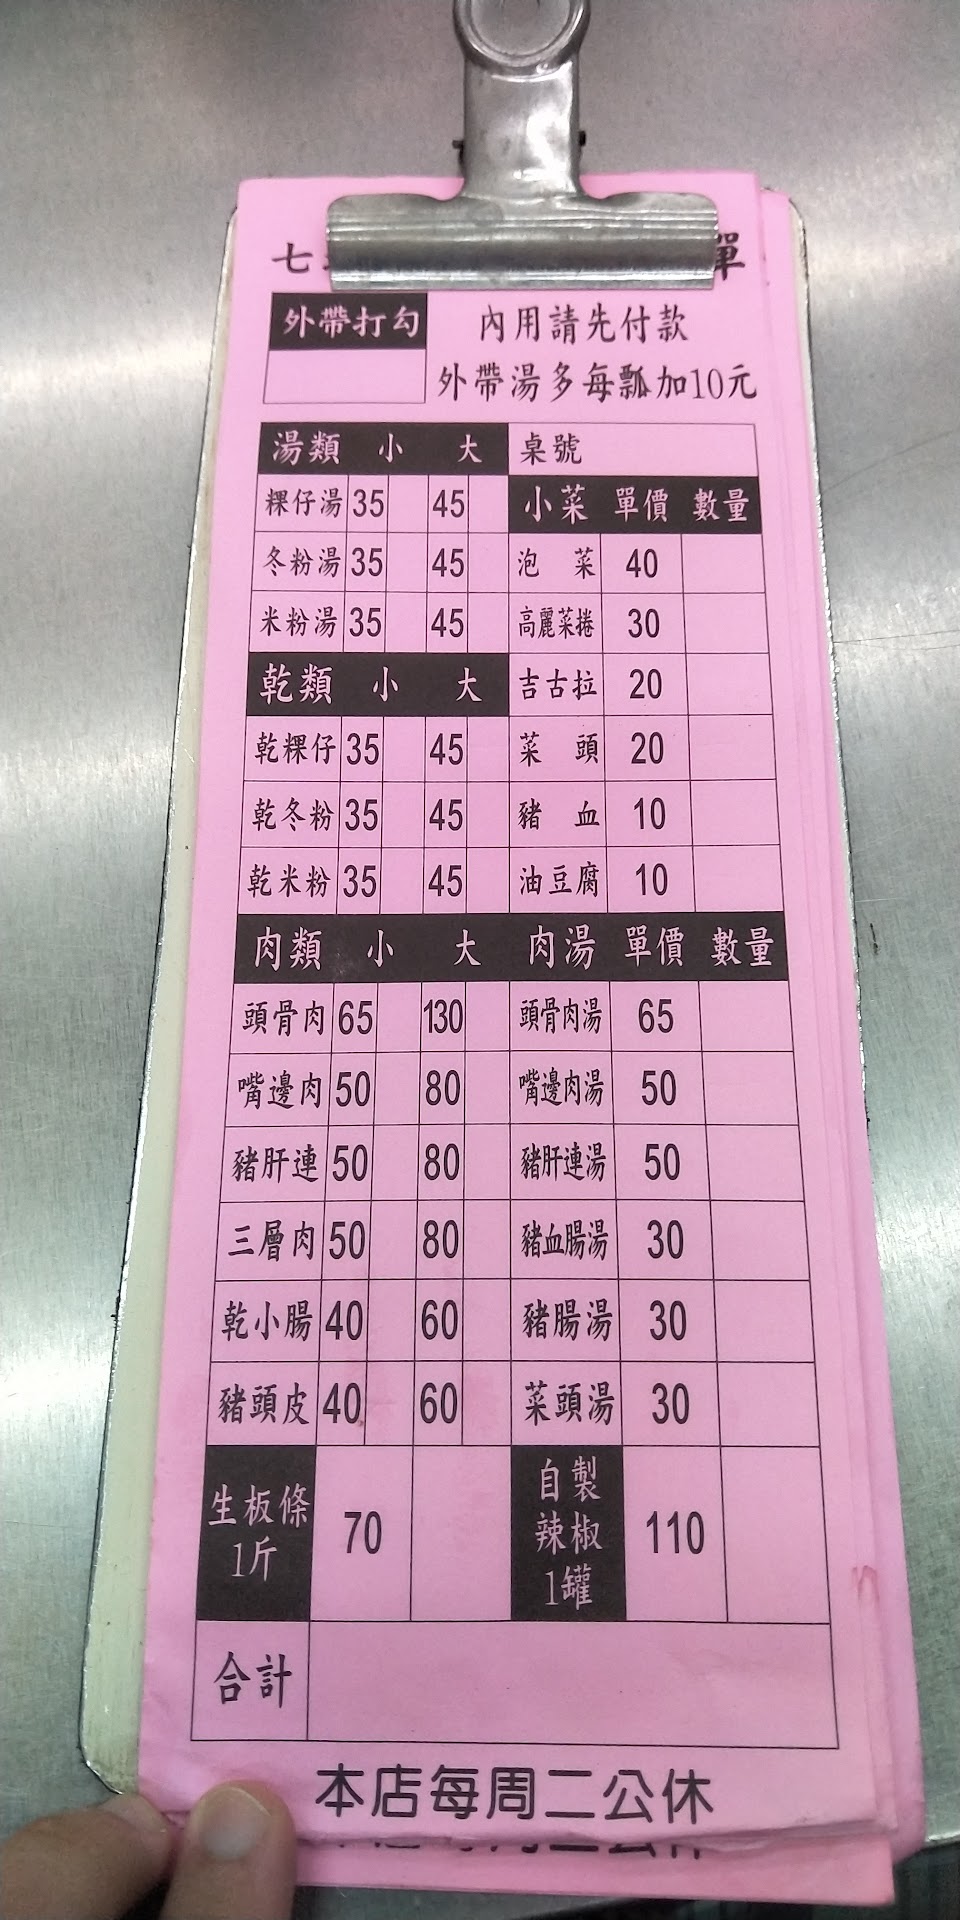 七 單
外帶打勾
內用請先付款
外帶湯多每瓢加10元
湯類 小 大 桌號
粿仔湯 35 45 小菜 單價 數量
冬粉湯 35 45 泡菜 40
米粉湯 35 45 高麗菜捲 30
乾類 小 大 吉古拉 20
乾粿仔 35 45 菜頭 20
乾冬粉 35 45 豬血 10
乾米粉 35 45 油豆腐 10
肉類 小 大 肉湯 單價 數量
頭骨肉 65 130 頭骨肉湯 65
嘴邊肉 50 80 嘴邊肉湯 50
豬肝連 50 80 豬肝連湯 50
三層肉 50 80 豬血腸湯 30
乾小腸 40 60 豬腸湯 30
豬頭皮 40 60 菜頭湯 30
生板條
1斤
70
自製
辣椒
1罐
110
合計
本店每周二公休